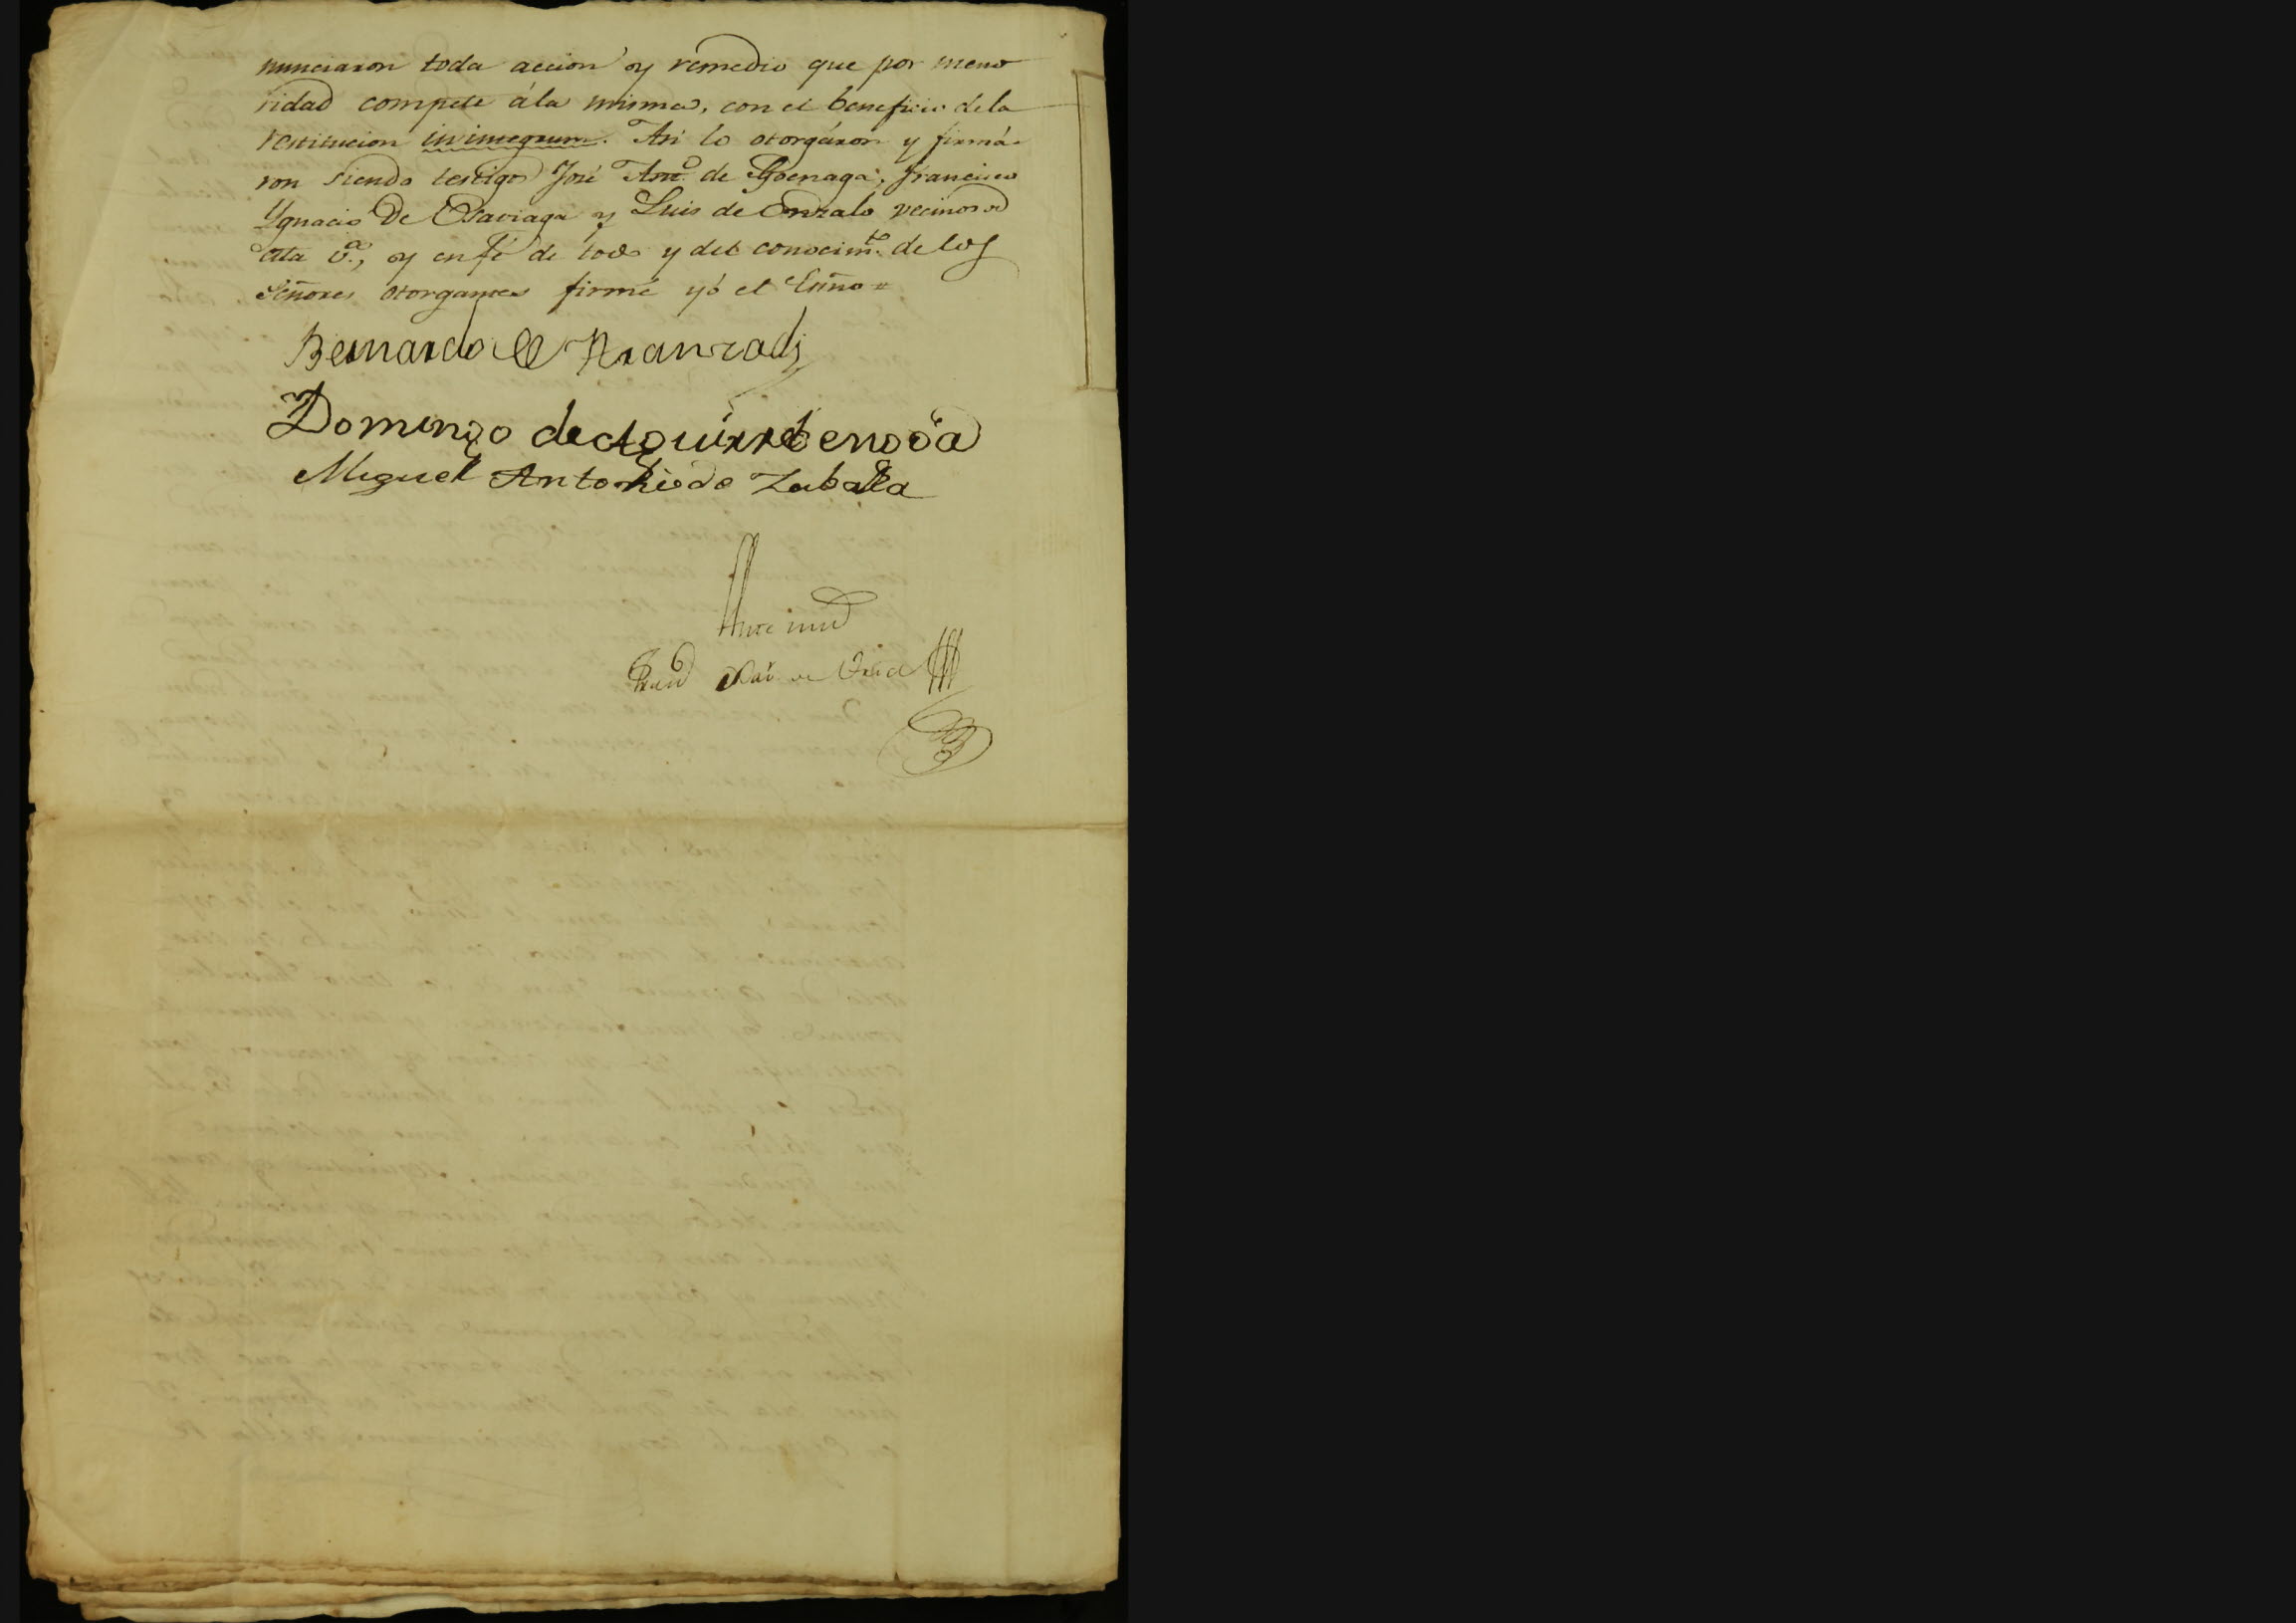 nunciaron toda accion y remedio que por meno
ridad compete á la misma, con el beneficio de la
restitucion in integrum. Asi lo otorgáron y firmá-
ron siendo testigos José Ant.º de Goenaga, Francisco
Ygnacio De Olaviaga y Luis de Onzalo vecinos de
esta v.ª, y en fé de todo y del conocim.to de los
Señores otorgantes firmé yó el Essno =
Bernardo de Aranzadi
Domingo de Aguirrebengoa
Miguel Antonio de Zabala
Ante mi